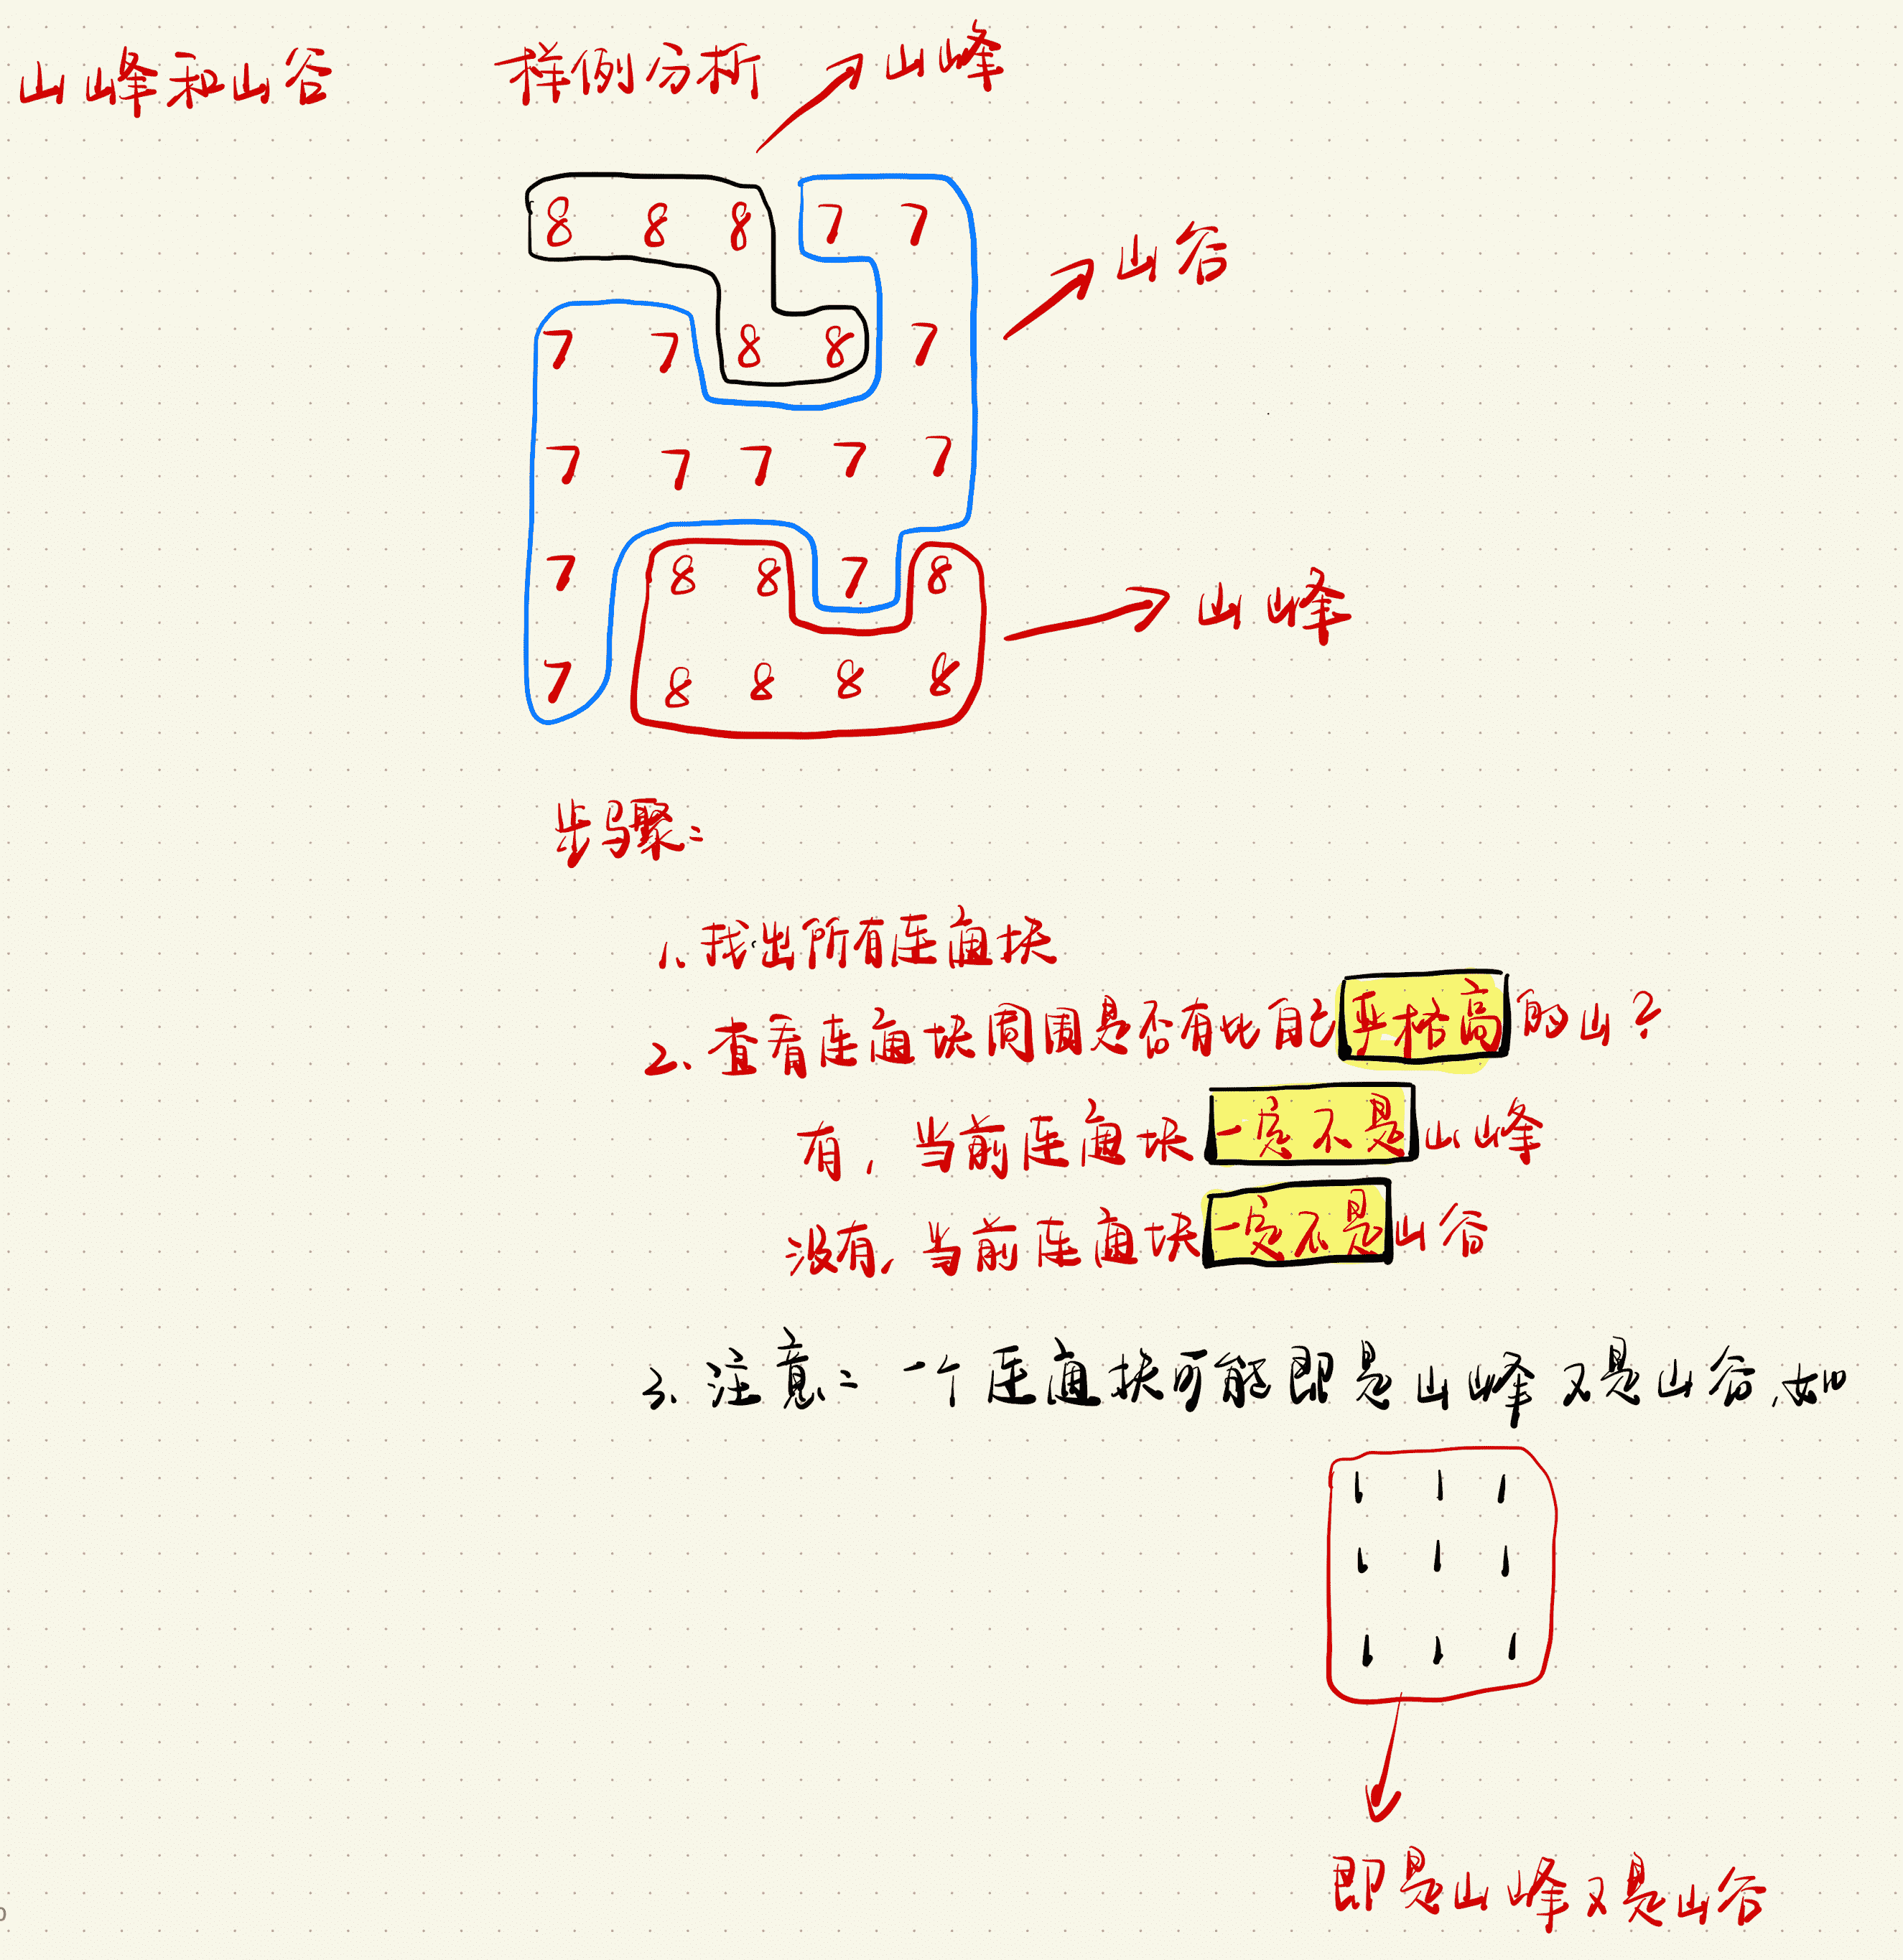 山峰和山谷 样例分析 山峰
8 8 8 7 7
山谷
7 7 8 8 7
7 7 7 7 7
7 8 8 7 8
山峰
7 8 8 8 8
步骤:
1、找出所有连通块
2、查看连通块周围是否有比自己严格高的山?
有,当前连通块一定不是山峰
没有,当前连通块一定不是山谷
3、注意:一个连通块可能即是山峰又是山谷,如
1 1 1
1 1 1
1 1 1
即是山峰又是山谷